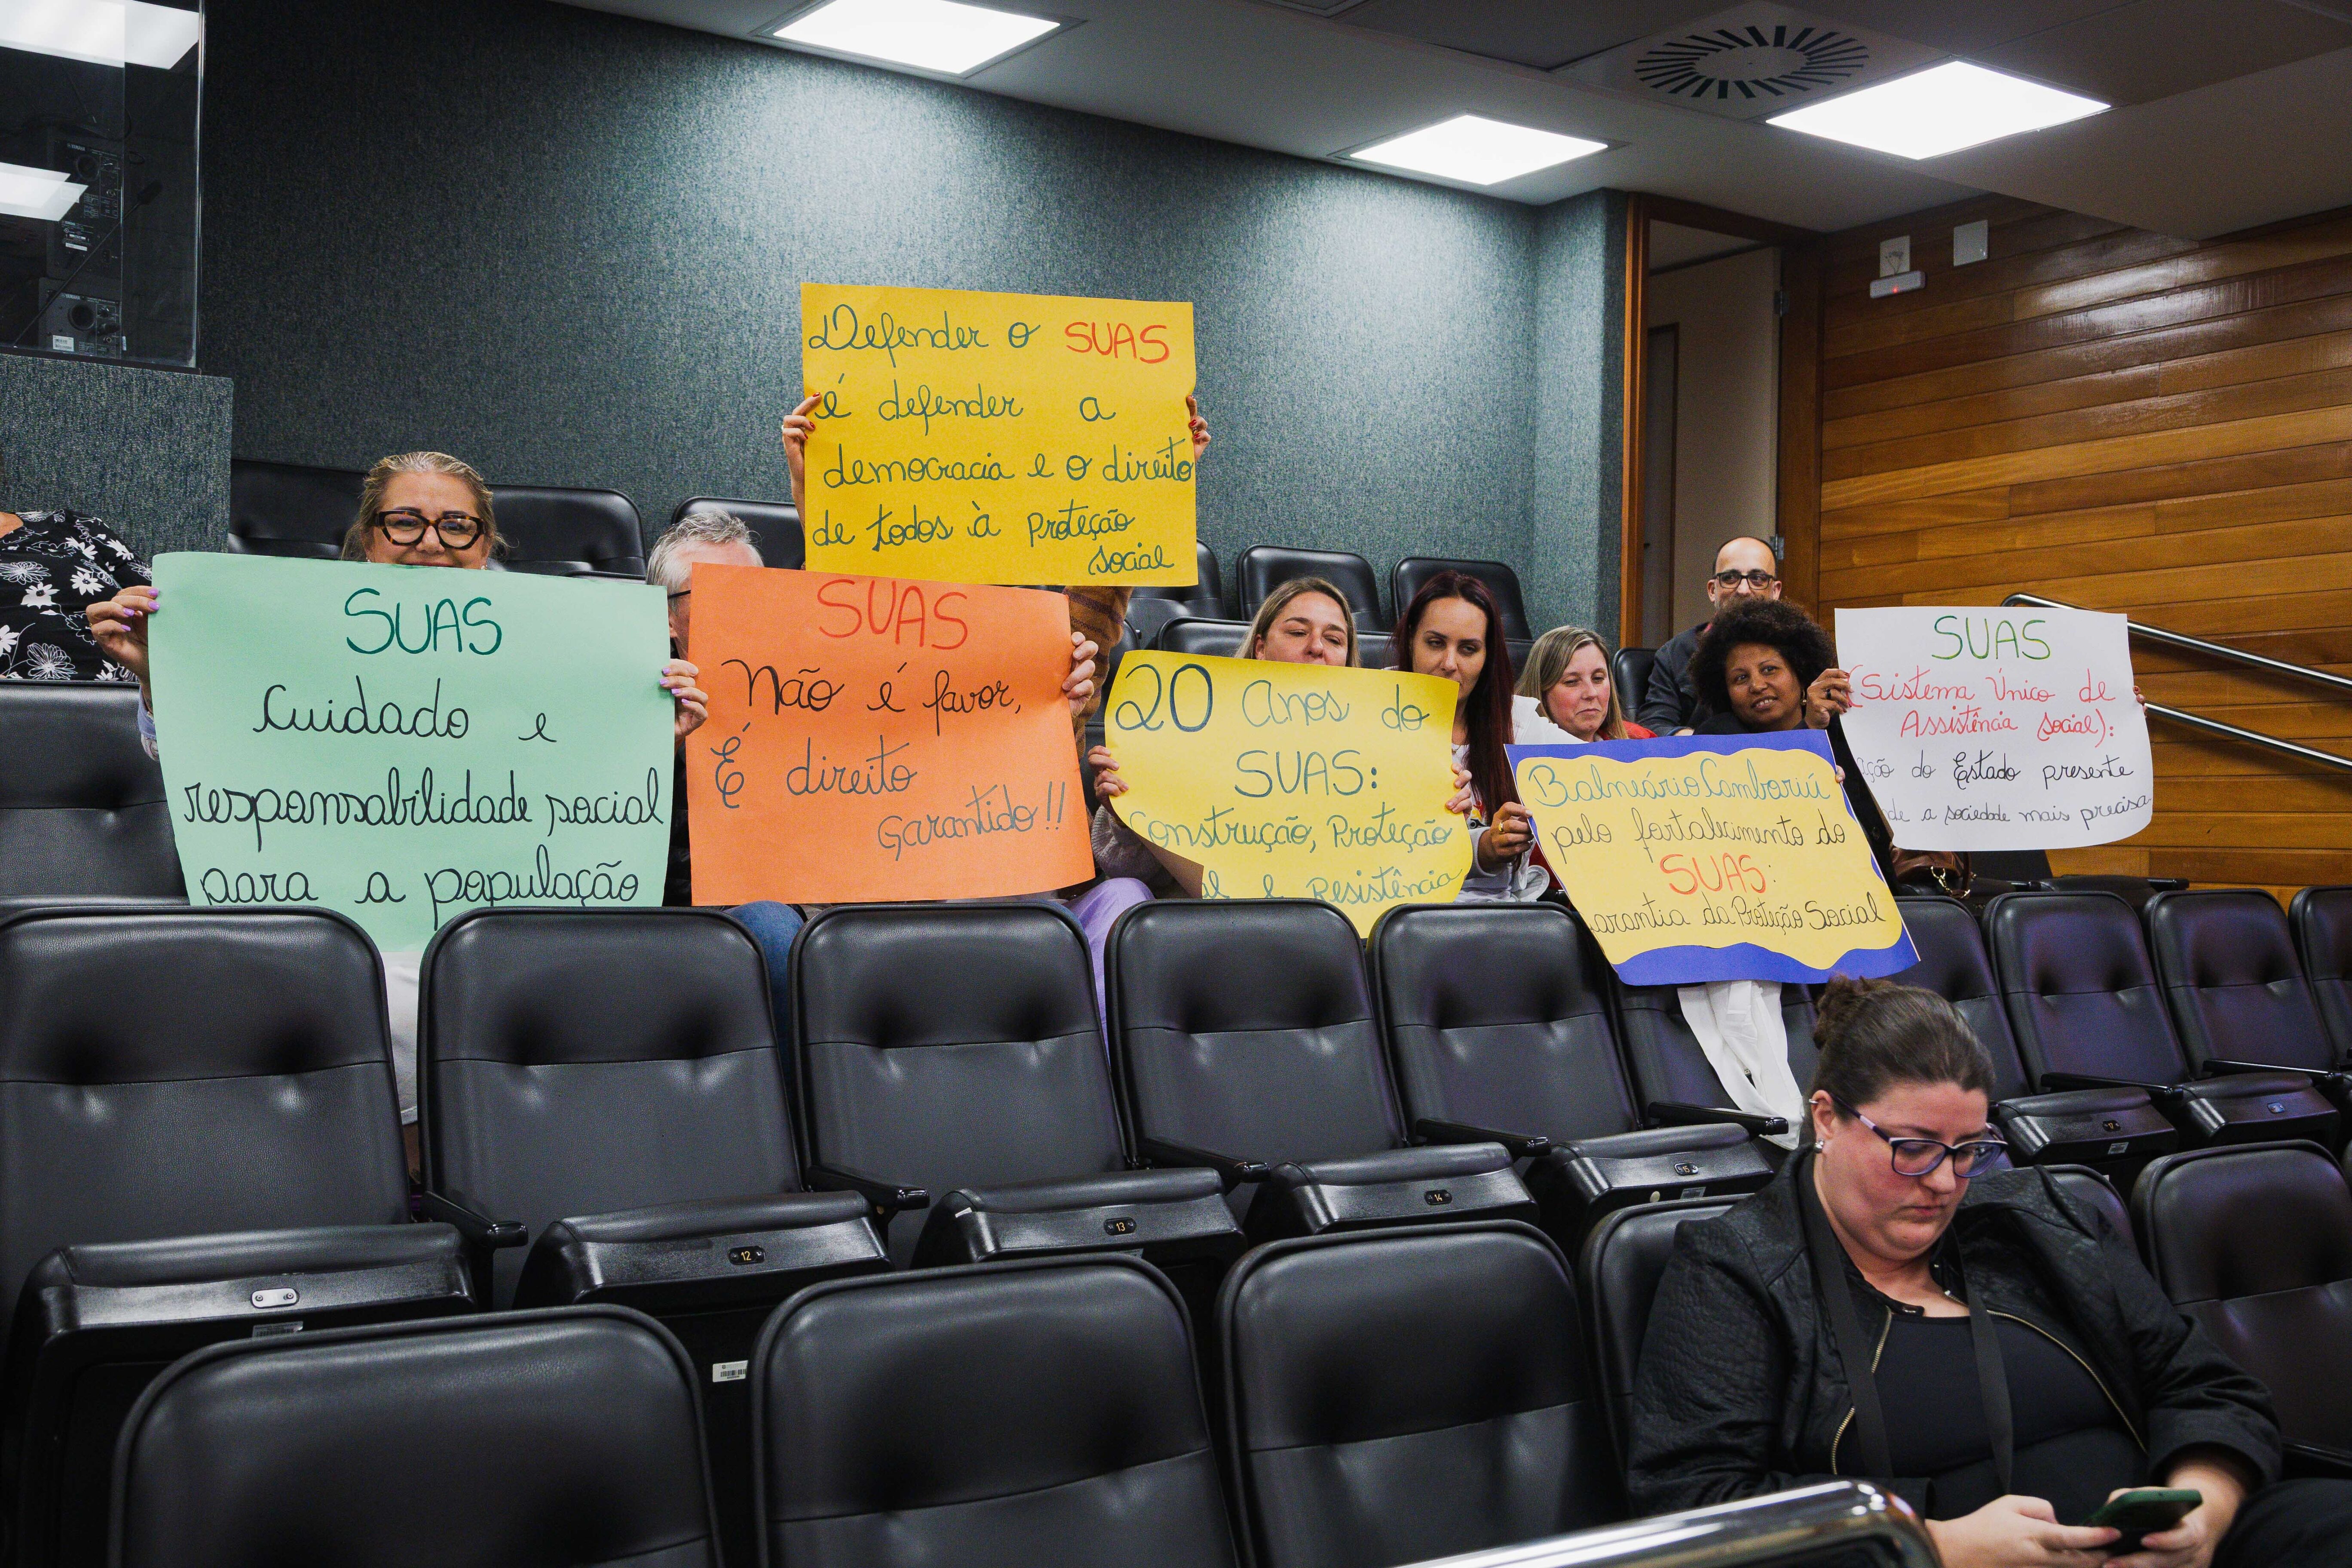 SUAS
Cuidado e
responsabilidade social
para a população
Defender o SUAS
é defender a
democracia e o direito
de todos à Proteção
social
SUAS
Não é favor,
É direito
Garantido!!
20 Anos do
SUAS:
Construção, Proteção
e Resistência
Balneário Camboriú
pelo fortalecimento do
SUAS:
da Proteção Social
SUAS
(Sistema Único de
Assistência Social):
do Estado presente
a sociedade mais precisa
12
13
14
15